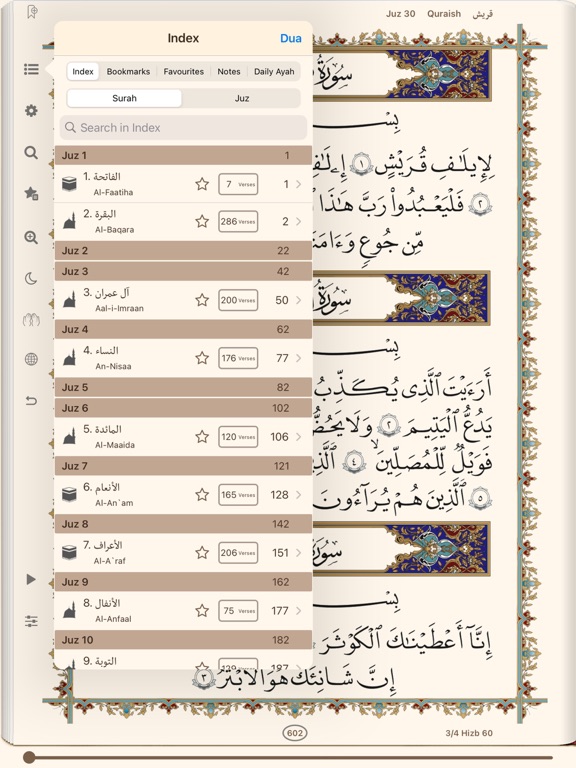 Juz 30 Quraish قريش
Index
Dua
Index Bookmarks Favourites Notes Daily Ayah
Surah Juz
Search in Index
Juz 1 1
1. الفاتحة
Al-Faatiha
7 Verses 1
2. البقرة
Al-Baqara
286 Verses 2
Juz 2 22
Juz 3 42
3. آل عمران
Aal-i-Imraan
200 Verses 50
Juz 4 62
4. النساء
An-Nisaa
176 Verses 77
Juz 5 82
Juz 6 102
5. المائدة
Al-Maaida
120 Verses 106
Juz 7 121
6. الأنعام
Al-An`am
165 Verses 128
Juz 8 142
7. الأعراف
Al-A`raf
206 Verses 151
Juz 9 162
8. الأنفال
Al-Anfaal
75 Verses 177
Juz 10 182
9. التوبة
سُورَةُ
بِسْـ
لِإِيلَٰفِ قُرَيْشٍ ١ إِۦلَٰفِ
فَلْيَعْبُدُوا۟ رَبَّ هَٰذَا ٢
مِّن جُوعٍ وَءَامَنَ
سُورَةُ
بِسْـ
أَرَءَيْتَ ٱلَّذِى يُكَذِّبُ
يَدُعُّ ٱلْيَتِيمَ ٢ وَلَا يَحُضُّ
فَوَيْلٌ لِّلْمُصَلِّينَ ٤ ٱلَّذِ
ٱلَّذِينَ هُمْ يُرَآءُونَ ٥
سُورَ
بِسْـ
إِنَّآ أَعْطَيْنَٰكَ ٱلْكَوْثَرَ
إِنَّ شَانِئَكَ هُوَ ٱلْأَبْتَرُ ٣
602
3/4 Hizb 60